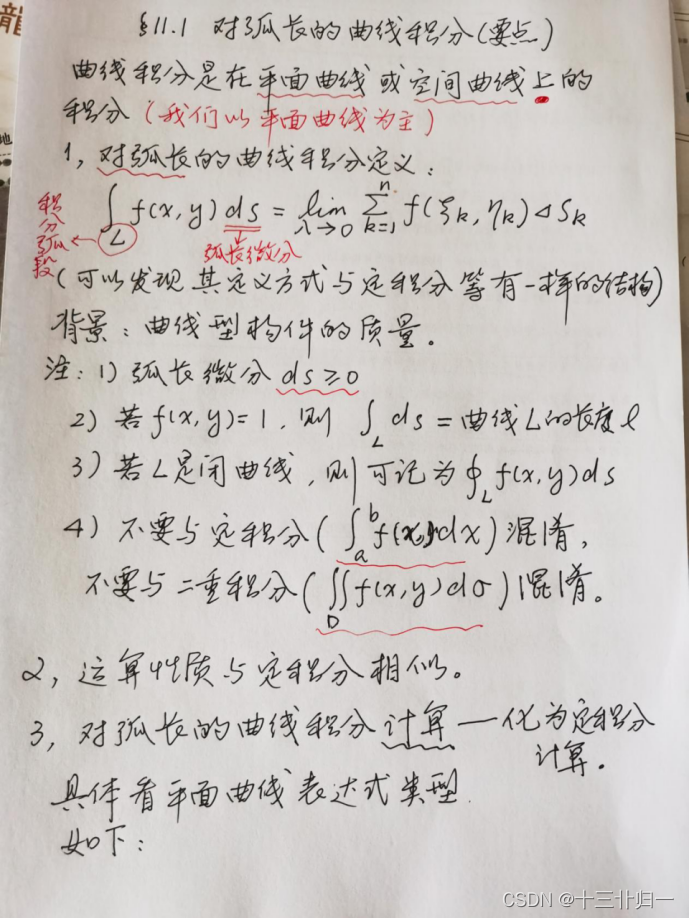 §11.1 对弧长的曲线积分(要点)
曲线积分是在平面曲线或空间曲线上的
积分(我们以平面曲线为主)
1, 对弧长的曲线积分定义:
∫_L f(x,y) ds = lim_{λ→0} Σ_{k=1}^{n} f(ξ_k, η_k) ΔS_k
积分弧段
弧长微分
(可以发现其定义方式与定积分等有一样的结构)
背景: 曲线型构件的质量。
注: 1) 弧长微分 ds≥0
2) 若 f(x,y)=1, 则 ∫_L ds = 曲线L的长度 l
3) 若L是闭曲线, 则可记为 ∮_L f(x,y)ds
4) 不要与定积分(∫_a^b f(x)dx)混淆,
不要与二重积分(∬_D f(x,y)dσ)混淆。
2, 运算性质与定积分相似。
3, 对弧长的曲线积分计算—化为定积分
计算。
具体看平面曲线表达式类型
如下:
CSDN @十三卝归一